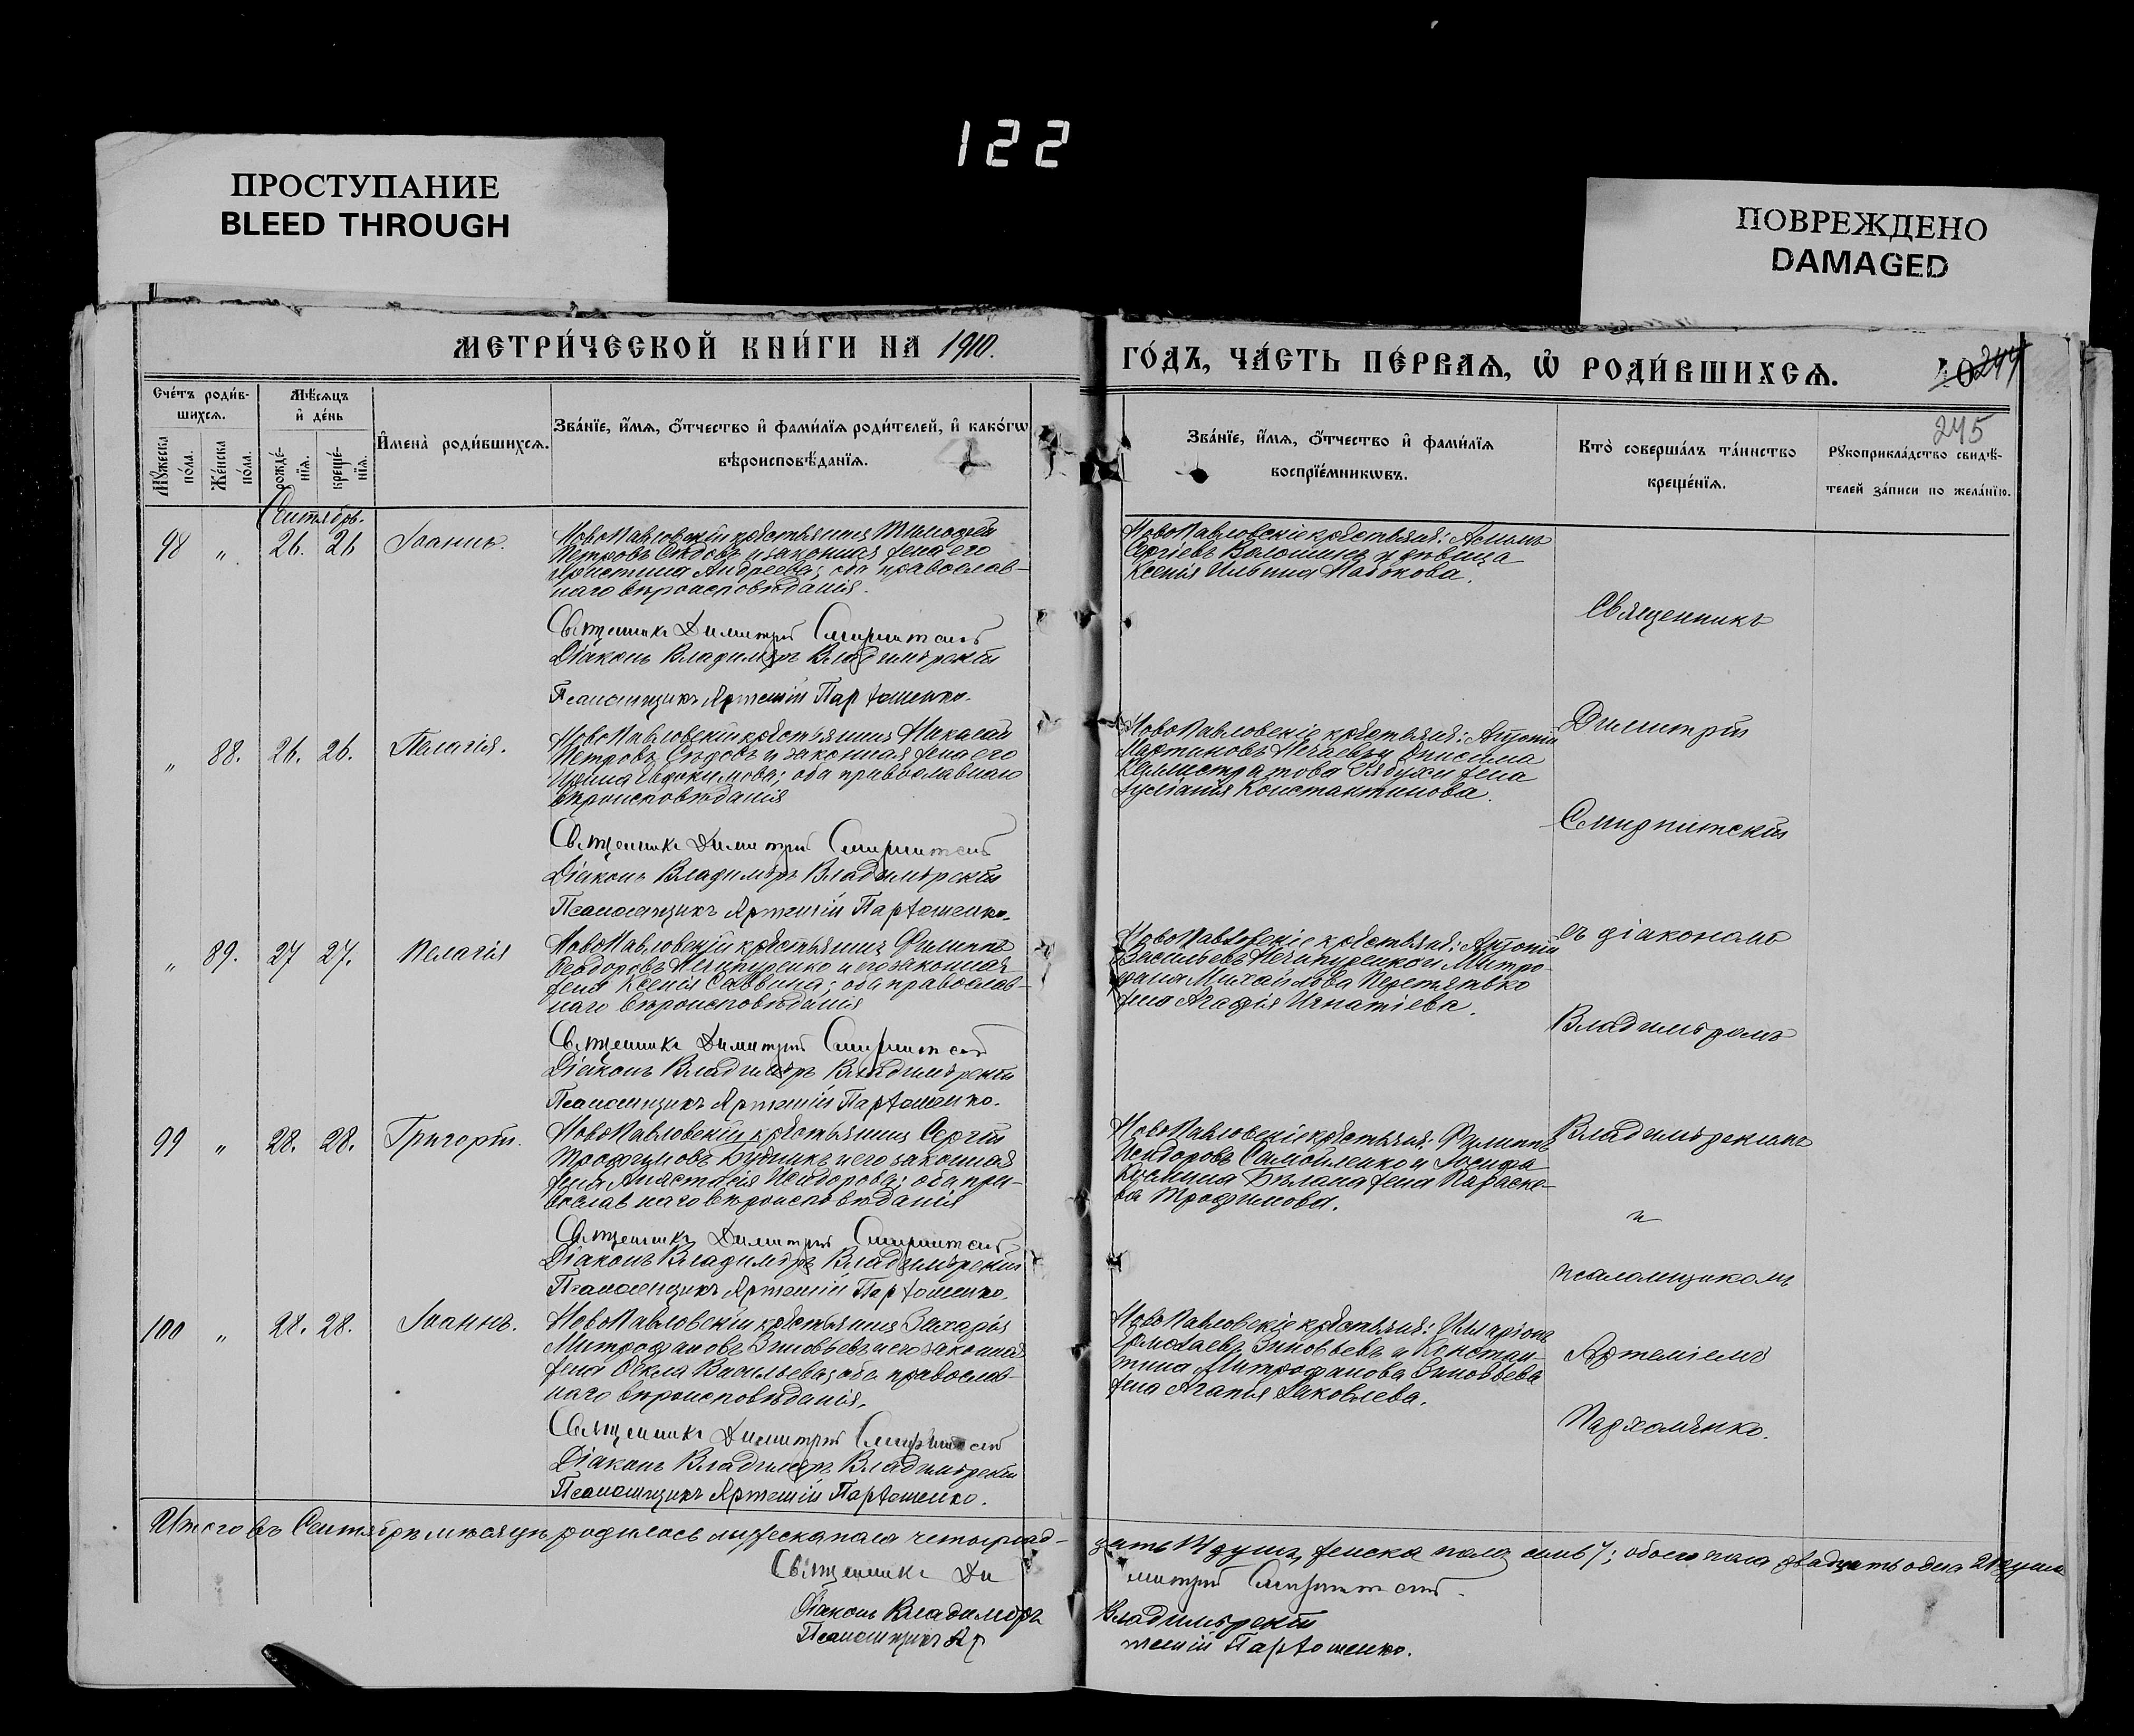 122
ПРОСТУПАНИЕ
BLEED THROUGH
ПОВРЕЖДЕНО
DAMAGED
МЕТРИ́ЧЕСКОЙ КНИ́ГИ НА 1910.
ГО́ДЪ, ЧА́СТЬ ПЕ́РВАѦ, Ѡ҆ РОДИ́ВШИХСѦ.
244
245
Сче́тъ роди́в-
шихсѧ.
Мꙋ́жеска
по́ла.
Же́нска
по́ла.
Мѣ́сѧцъ
и҆ де́нь
рожде́-
нїѧ.
креще́-
нїѧ.
И҆мена̀ роди́вшихсѧ.
Зва́нїе, и҆́мѧ, ѻ҆́тчество и҆ фами́лїѧ роди́телей, и҆ како́гѡ
вѣроисповѣ́данїѧ.
Зва́нїе, и҆́мѧ, ѻ҆́тчество и҆ фами́лїѧ
воспрїе́мникѡвъ.
Кто̀ соверша́лъ та́инство
креще́нїѧ.
Рꙋкоприкла́дство свидѣ́-
телей за́писи по жела́нїю.
Сентябрь.
98 " 26. 26 Іоаннъ.
НовоПавловскій крестьянинъ Тимофей
Петровъ Сѣдовъ и законная жена его
Христина Андреева; оба православ-
наго вѣроисповѣданія.
Священникъ Димитрій
Діаконъ Владиміръ Владимірскій
Псаломщикъ Артемій Пархоменко.
НовоПавловскіе крестьяне:
Сергіевъ Волошинъ и дѣвица
Ксенія Ильина Набокова.
" 88. 26. 26. Пелагія.
НовоПавловскій крестьянинъ
Петровъ Сѣдовъ и законная жена его
Ирина Евдокимова; оба православнаго
вѣроисповѣданія
Священникъ Димитрій
Діаконъ Владиміръ Владимірскій
Псаломщикъ Артемій Пархоменко.
НовоПавловскіе крестьяне: Антоній
Мартиновъ Нечаевъ и Онисима
Каллистратова жена
Константинова.
" 89. 27 27. Пелагія
НовоПавловскій крестьянинъ Филиппъ
Феодоровъ Нечипуренко и его законная
жена Ксенія Саввина; оба православ-
наго вѣроисповѣданія
Священникъ Димитрій
Діаконъ Владиміръ Владимірскій
Псаломщикъ Артемій Пархоменко.
НовоПавловскіе крестьяне: Антоній
Васильевъ Нечипуренко и Митро-
фана Михайлова Перетятько
жена Агафія Игнатіева.
99 " 28. 28. Григорій.
НовоПавловскій крестьянинъ Сергій
Трофимовъ Будникъ и его законная
жена Анастасія Исидорова; оба пра-
вославнаго вѣроисповѣданія
Священникъ Димитрій
Діаконъ Владиміръ Владимірскій
Псаломщикъ Артемій Пархоменко.
НовоПавловскіе крестьяне: Филиппъ
Исидоровъ Самойленко и Іосифа
Кузмина Бѣлана жена Параске-
ва Трофимова.
100 " 28. 28. Іоаннъ.
НовоПавловскій крестьянинъ Захарія
Митрофановъ Зиновьевъ и его законная
жена Ѳекла Васильева; оба православ-
наго вѣроисповѣданія.
Священникъ Димитрій
Діаконъ Владиміръ Владимірскій
Псаломщикъ Артемій Пархоменко.
НовоПавловскіе крестьяне: Иларіонъ
Ермолаевъ Зиновьевъ и Констан-
тина Митрофанова Зиновьева
жена Агапія Яковлева.
Священникъ
Димитрій
съ діакономъ
Владиміромъ
Владимірскимъ
и
псаломщикомъ
Артеміемъ
Пархоменко.
Итого въ Сентябрѣ мѣсяцѣ родилось мужеска пола четырнад-
цать 14 душъ, женска пола семь 7; обоего пола двадцать одна 21 душа
Священникъ Ди
митрій
Діаконъ Владиміръ
Владимірскій
Псаломщикъ Ар
темій Пархоменко.